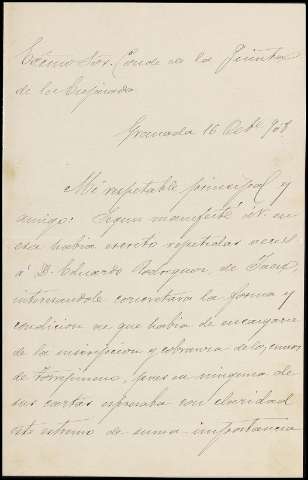 Excmo Sor. Conde de la Quinta
de la Enjarada
Granada 16 Octe 908
Mi respetable principal y
amigo: Segun manifesté á V. en
esa habia escrito repetidas veces
á D. Eduardo Rodriguez, de Jaen,
interesandole concretara la forma y
condicion en que habia de encargarse
de la inscripcion y cobranza de los censos
de Torrejimeno, pues en ninguna de
sus cartas expresaba con claridad
este extremo de suma importancia